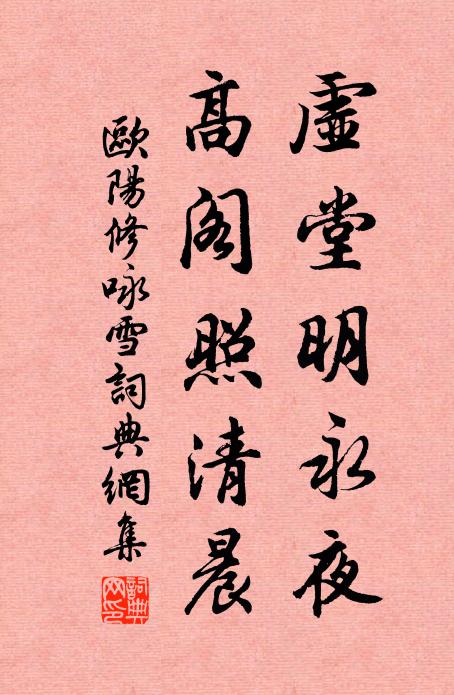 虛堂明永夜
高阁照清晨
歐陽修咏雪詞典網集
詞典
网印